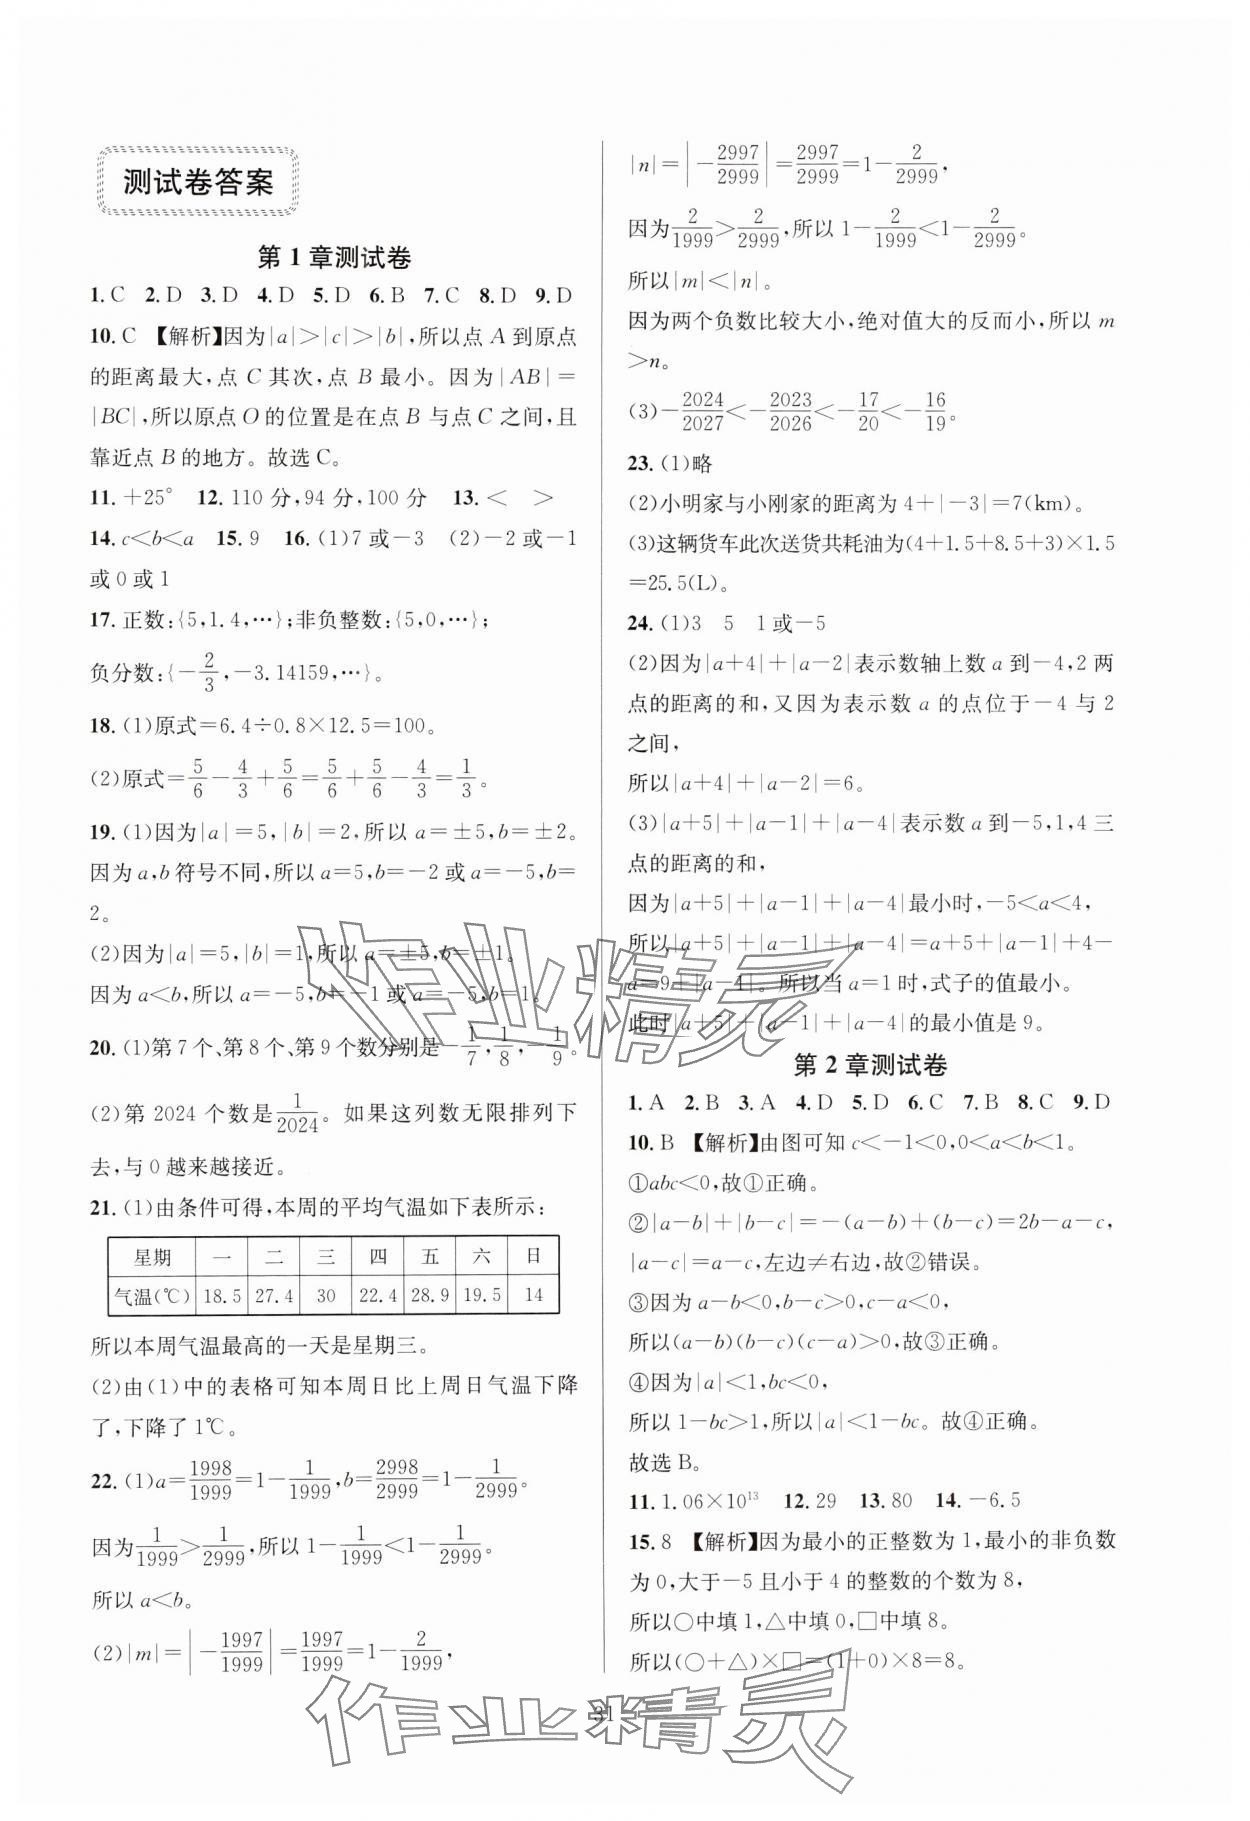 测试卷答案
第1章测试卷
1.C 2.D 3.D 4.D 5.D 6.B 7.C 8.D 9.D
10.C 【解析】因为|a|>|c|>|b|,所以点A到原点
的距离最大,点C其次,点B最小。因为|AB|=
|BC|,所以原点O的位置是在点B与点C之间,且
靠近点B的地方。故选C。
11.+25° 12.110分,94分,100分 13.< >
14.c<b<a 15.9 16.(1)7或-3 (2)-2或-1
或0或1
17.正数:{5,1.4,…};非负整数:{5,0,…};
负分数:{-2/3,-3.14159,…}。
18.(1)原式=6.4÷0.8×12.5=100。
(2)原式=5/6-4/3+5/6=5/6+5/6-4/3=1/3。
19.(1)因为|a|=5,|b|=2,所以a=±5,b=±2。
因为a,b符号不同,所以a=5,b=-2或a=-5,b=
2。
(2)因为|a|=5,|b|=1,所以a=±5,b=±1。
因为a<b,所以a=-5,b=-1或a=-5,b=1。
20.(1)第7个、第8个、第9个数分别是-1/7,1/8,-1/9。
(2)第2024个数是1/2024。如果这列数无限排列下
去,与0越来越接近。
21.(1)由条件可得,本周的平均气温如下表所示:
星期 一 二 三 四 五 六 日
气温(℃) 18.5 27.4 30 22.4 28.9 19.5 14
所以本周气温最高的一天是星期三。
(2)由(1)中的表格可知本周日比上周日气温下降
了,下降了1℃。
22.(1)a=1998/1999=1-1/1999,b=2998/2999=1-1/2999。
因为1/1999>1/2999,所以1-1/1999<1-1/2999。
所以a<b。
(2)|m|=|-1997/1999|=1997/1999=1-2/1999,
|n|=|-2997/2999|=2997/2999=1-2/2999,
因为2/1999>2/2999,所以1-2/1999<1-2/2999。
所以|m|<|n|。
因为两个负数比较大小,绝对值大的反而小,所以m
>n。
(3)-2024/2027<-2023/2026<-17/20<-16/19。
23.(1)略
(2)小明家与小刚家的距离为4+|-3|=7(km)。
(3)这辆货车此次送货共耗油为(4+1.5+8.5+3)×1.5
=25.5(L)。
24.(1)3 5 1或-5
(2)因为|a+4|+|a-2|表示数轴上数a到-4,2两
点的距离的和,又因为表示数a的点位于-4与2
之间,
所以|a+4|+|a-2|=6。
(3)|a+5|+|a-1|+|a-4|表示数a到-5,1,4三
点的距离的和,
因为|a+5|+|a-1|+|a-4|最小时,-5<a<4,
所以|a+5|+|a-1|+|a-4|=a+5+|a-1|+4-
a=9+|a-1|。所以当a=1时,式子的值最小。
此时|a+5|+|a-1|+|a-4|的最小值是9。
第2章测试卷
1.A 2.B 3.A 4.D 5.D 6.C 7.B 8.C 9.D
10.B 【解析】由图可知c<-1<0,0<a<b<1。
①abc<0,故①正确。
②|a-b|+|b-c|=-(a-b)+(b-c)=2b-a-c,
|a-c|=a-c,左边≠右边,故②错误。
③因为a-b<0,b-c>0,c-a<0,
所以(a-b)(b-c)(c-a)>0,故③正确。
④因为|a|<1,bc<0,
所以1-bc>1,所以|a|<1-bc。故④正确。
故选B。
11.1.06×10¹³ 12.29 13.80 14.-6.5
15.8 【解析】因为最小的正整数为1,最小的非负数
为0,大于-5且小于4的整数的个数为8,
所以○中填1,△中填0,□中填8。
所以(○+△)×□=(1+0)×8=8。
31
作业精灵
作业精灵